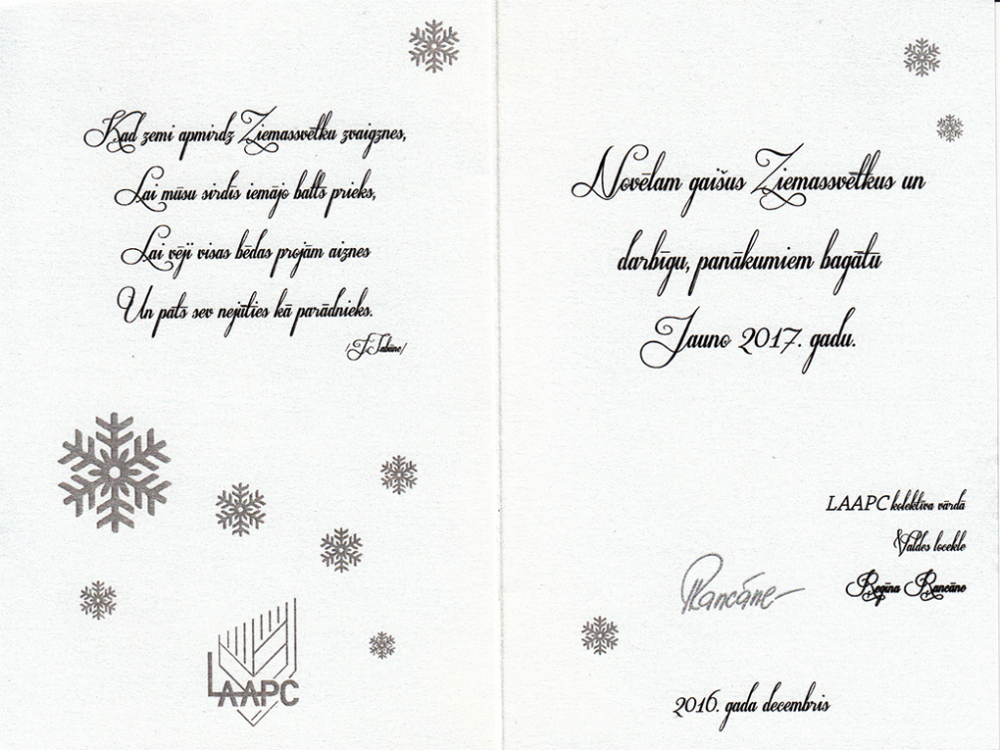 Kad zemi apmirdz Ziemassvētku zvaigznes,
Lai mūsu sirdīs iemājo balts prieks,
Lai vēji visas bēdas projām aiznes
Un pats sev nejūties kā parādnieks.
LAAPC
Novēlam gaišus Ziemassvētkus un
darbīgu, panākumiem bagātu
Jauno 2017. gadu.
LAAPC kolektīva vārdā
Valdes locekle
Regīna Rancāne
Rancāne
2016. gada decembris